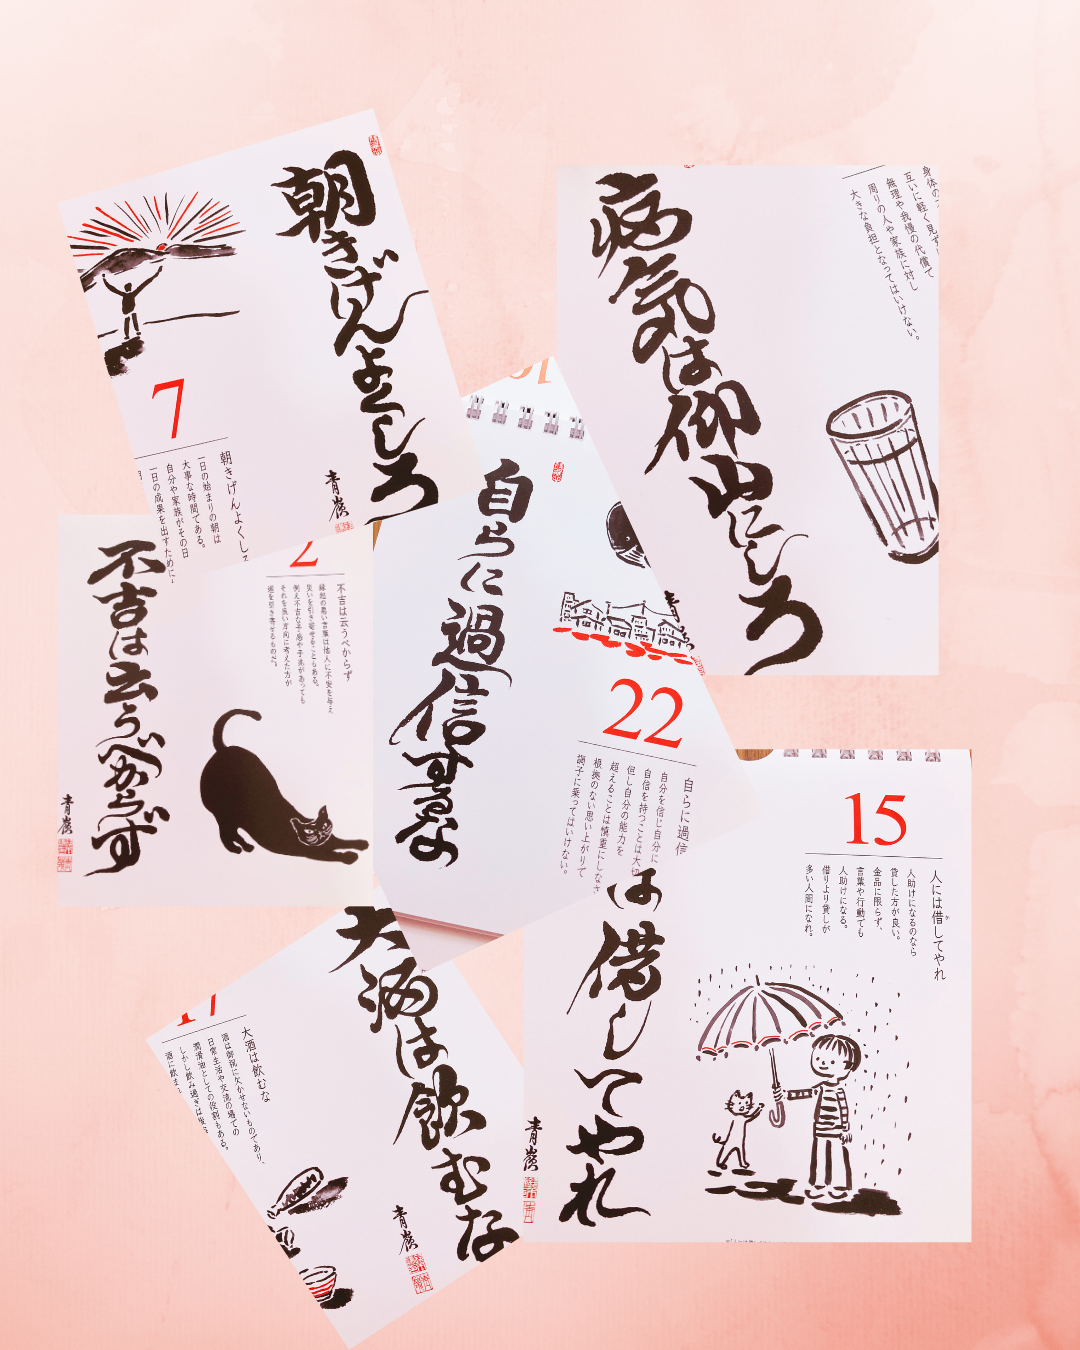 朝きげんよくしろ
青嶺
7
朝きげんよくしろ
一日の始まりの朝は
大事な時間である。
自分や家族がその日
一日の成果を出すために、
病気は仰山にしろ
互いに軽く見ず
無理や我慢の代償で
周りの人や家族に対し
大きな負担となってはいけない。
不吉は云うべからず
青嶺
2
不吉は云うべからず
縁起の悪い言葉は他人に不安を与え
災いを引き寄せることもある。
例え不吉な予感や予兆があっても
それを良い方向に考えた方が
運を引き寄せるものだ。
自らに過信するな
青
22
自らに過信
自分を信じ自分に
自信を持つことは大切
但し自分の能力を
超えることは慎重にしなさ
根拠のない思い上がりで
調子に乗ってはいけない。
は借してやれ
青嶺
15
人には借してやれ
か
人助けになるのなら
貸した方が良い。
金品に限らず、
言葉や行動でも
人助けになる。
借りより貸しが
多い人間になれ。
大酒は飲むな
青嶺
17
大酒は飲むな
酒は御祝に欠かせないものであり、
日常生活や交流の場での
潤滑油としての役割もある。
しかし飲み過ぎは
酒に飲ま